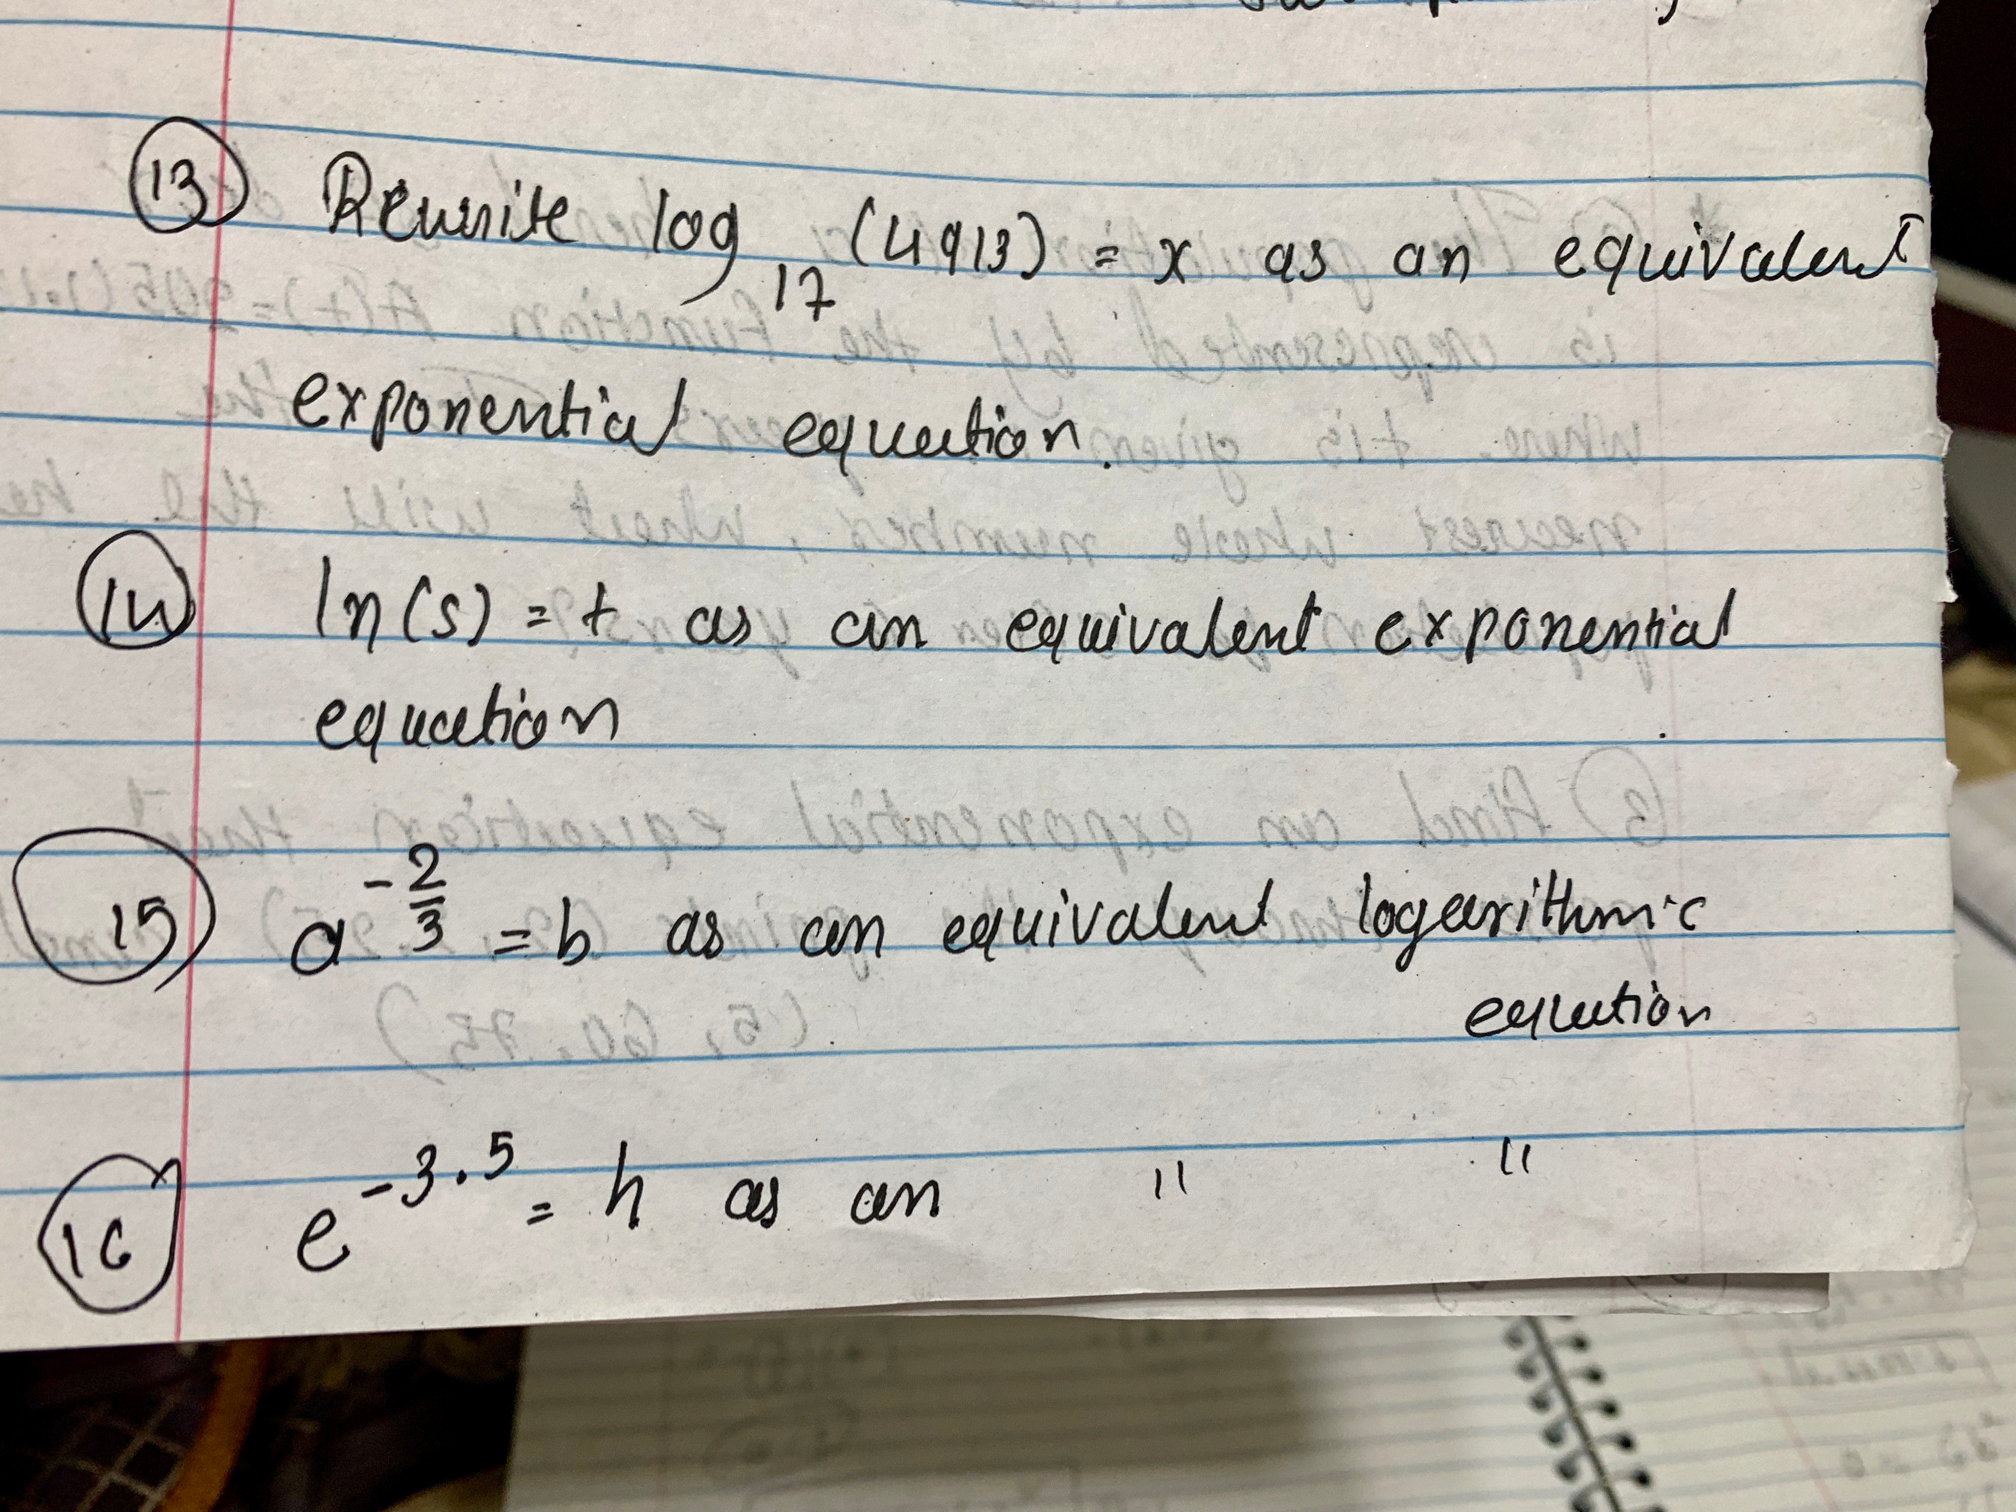 13 Rewrite log 17 (4913) = x as an equivalent
exponential equation.
14 ln(s) = t as an equivalent exponential
equation
15 a^-2/3 = b as an equivalent logarithmic
equation
16 e^-3.5 = h as an " "